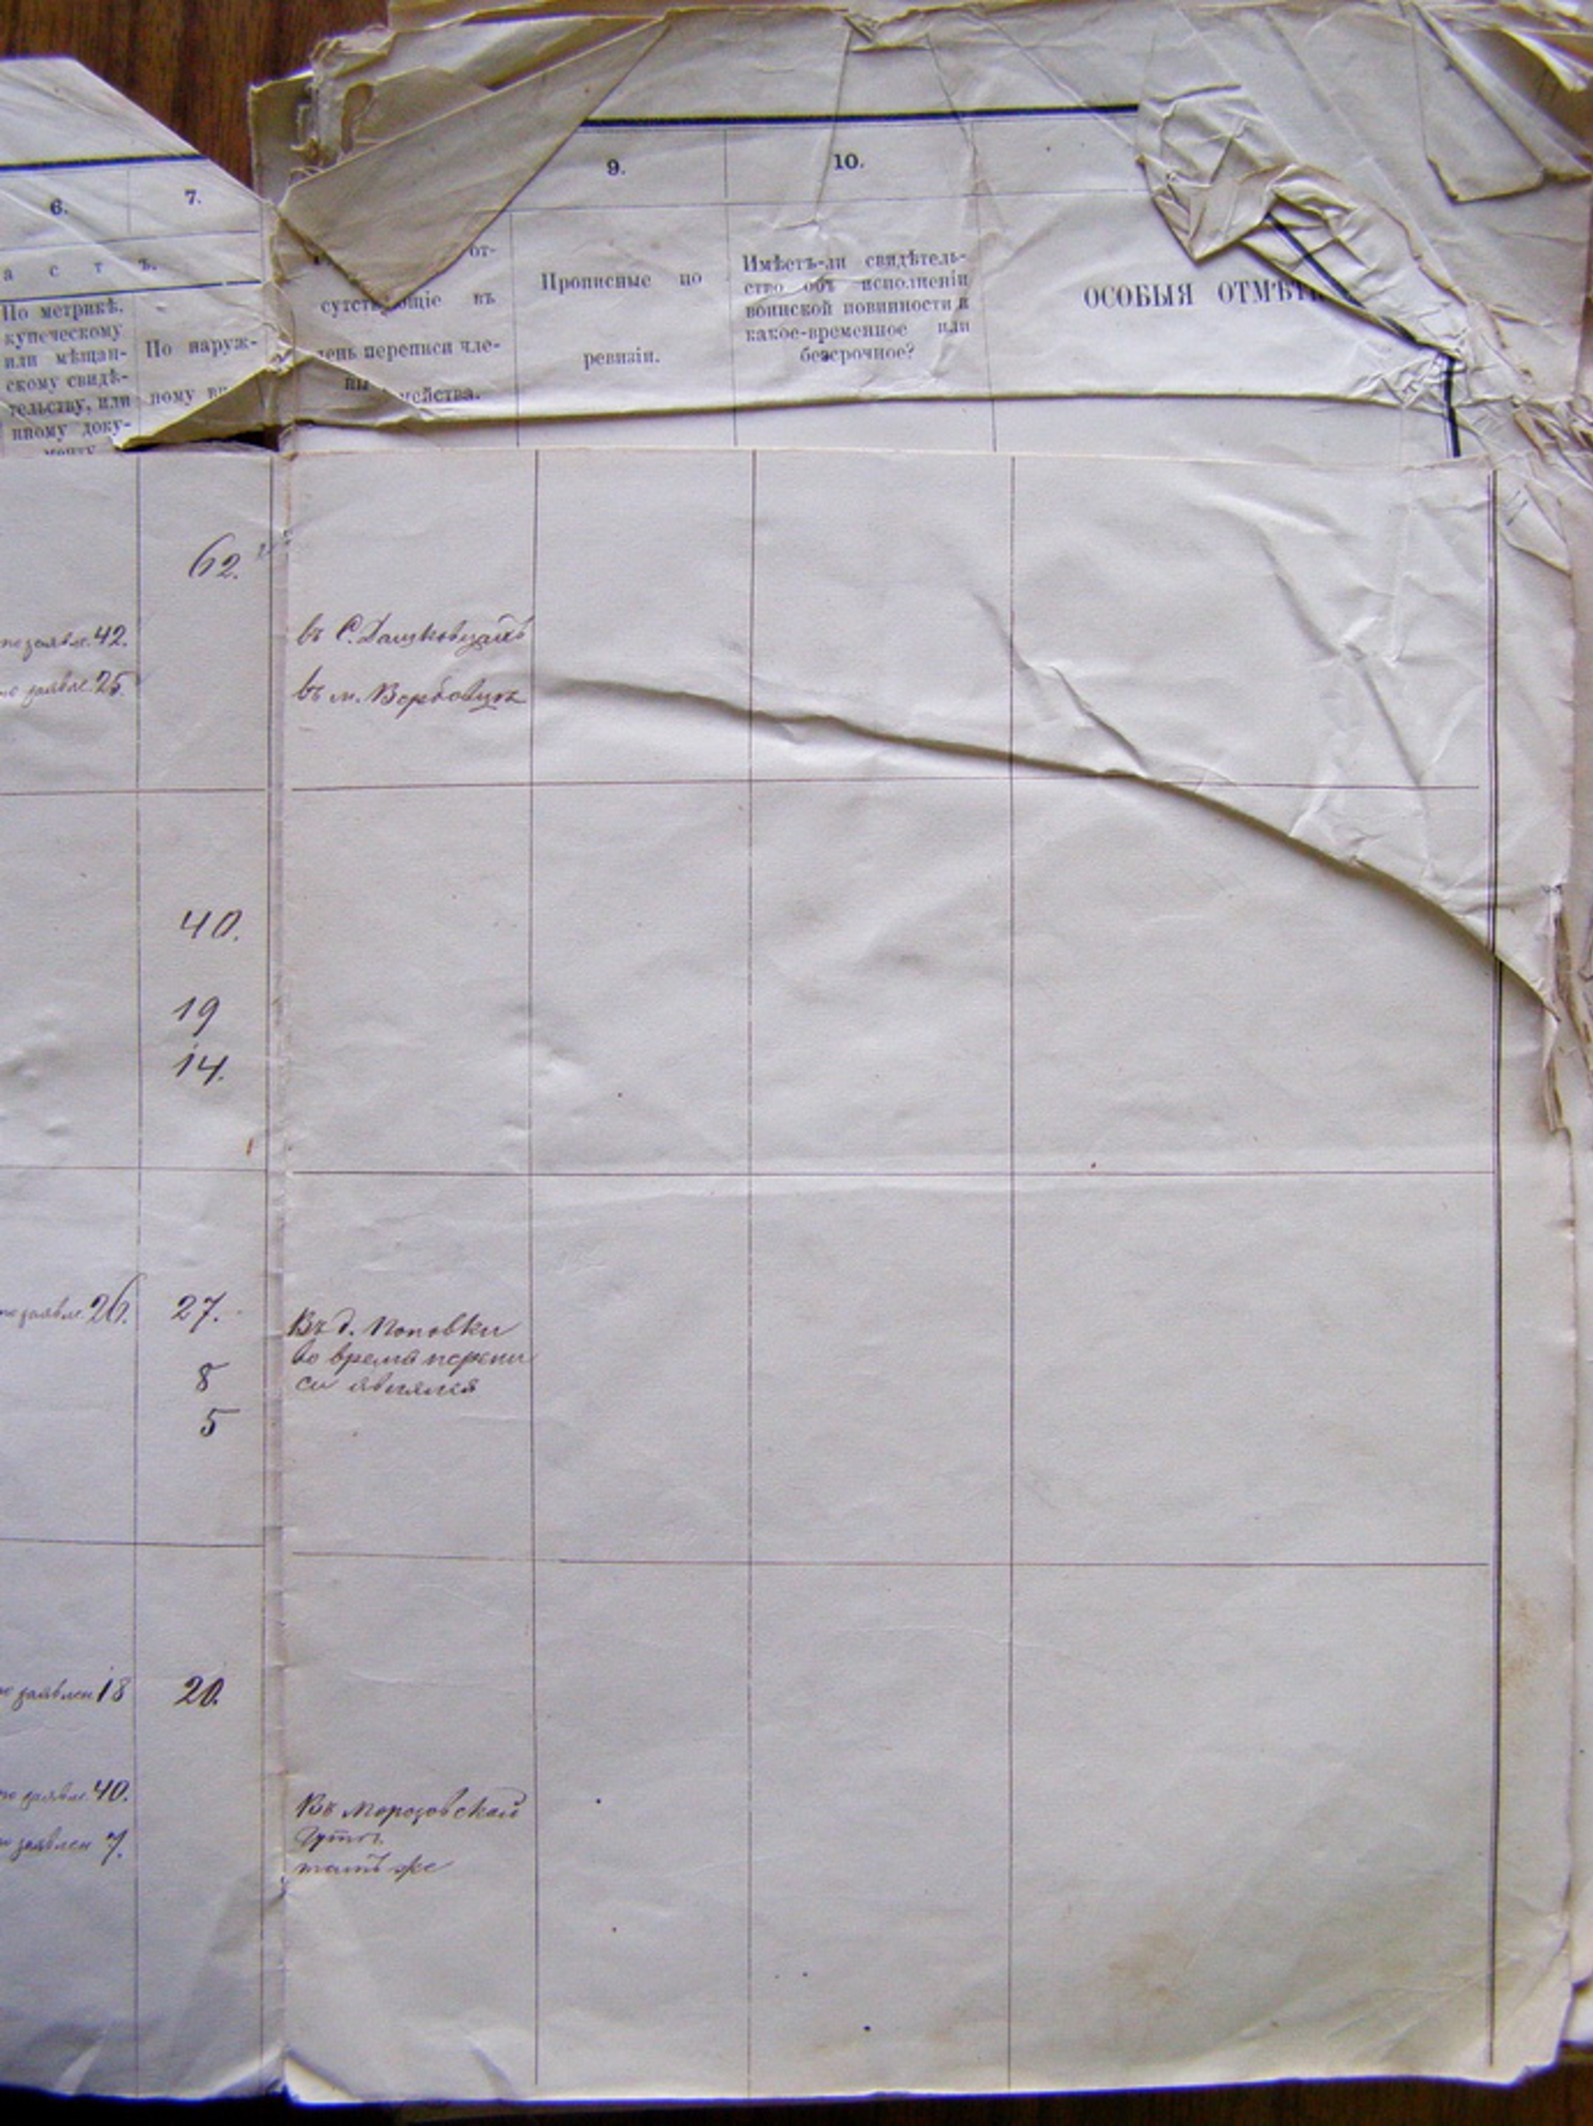 6.
7.
9.
10.
а с т ъ.
По метрикѣ,
купеческому
или мѣщан-
скому свидѣ-
тельству, или
иному доку-
менту
По наруж-
ному
от-
сутствующіе въ
день переписи чле-
ны семейства.
Прописные по
ревизіи.
Имѣетъ-ли свидѣтель-
ство объ исполненіи
воинской повинности и
какое-временное или
безсрочное?
ОСОБЫЯ ОТМѢТ
62.
по заявле. 42.
въ С. Дашковцахъ
по заявле. 25.
въ м. Вербовцѣ
40.
19
14.
по заявле. 26.
27.
Въ д. Поповки
во время перепи
си явился
8
5
по заявлен 18
20.
по заявле. 40.
Въ Морозовской
Гутѣ
по заявлен 7.
тамъ же